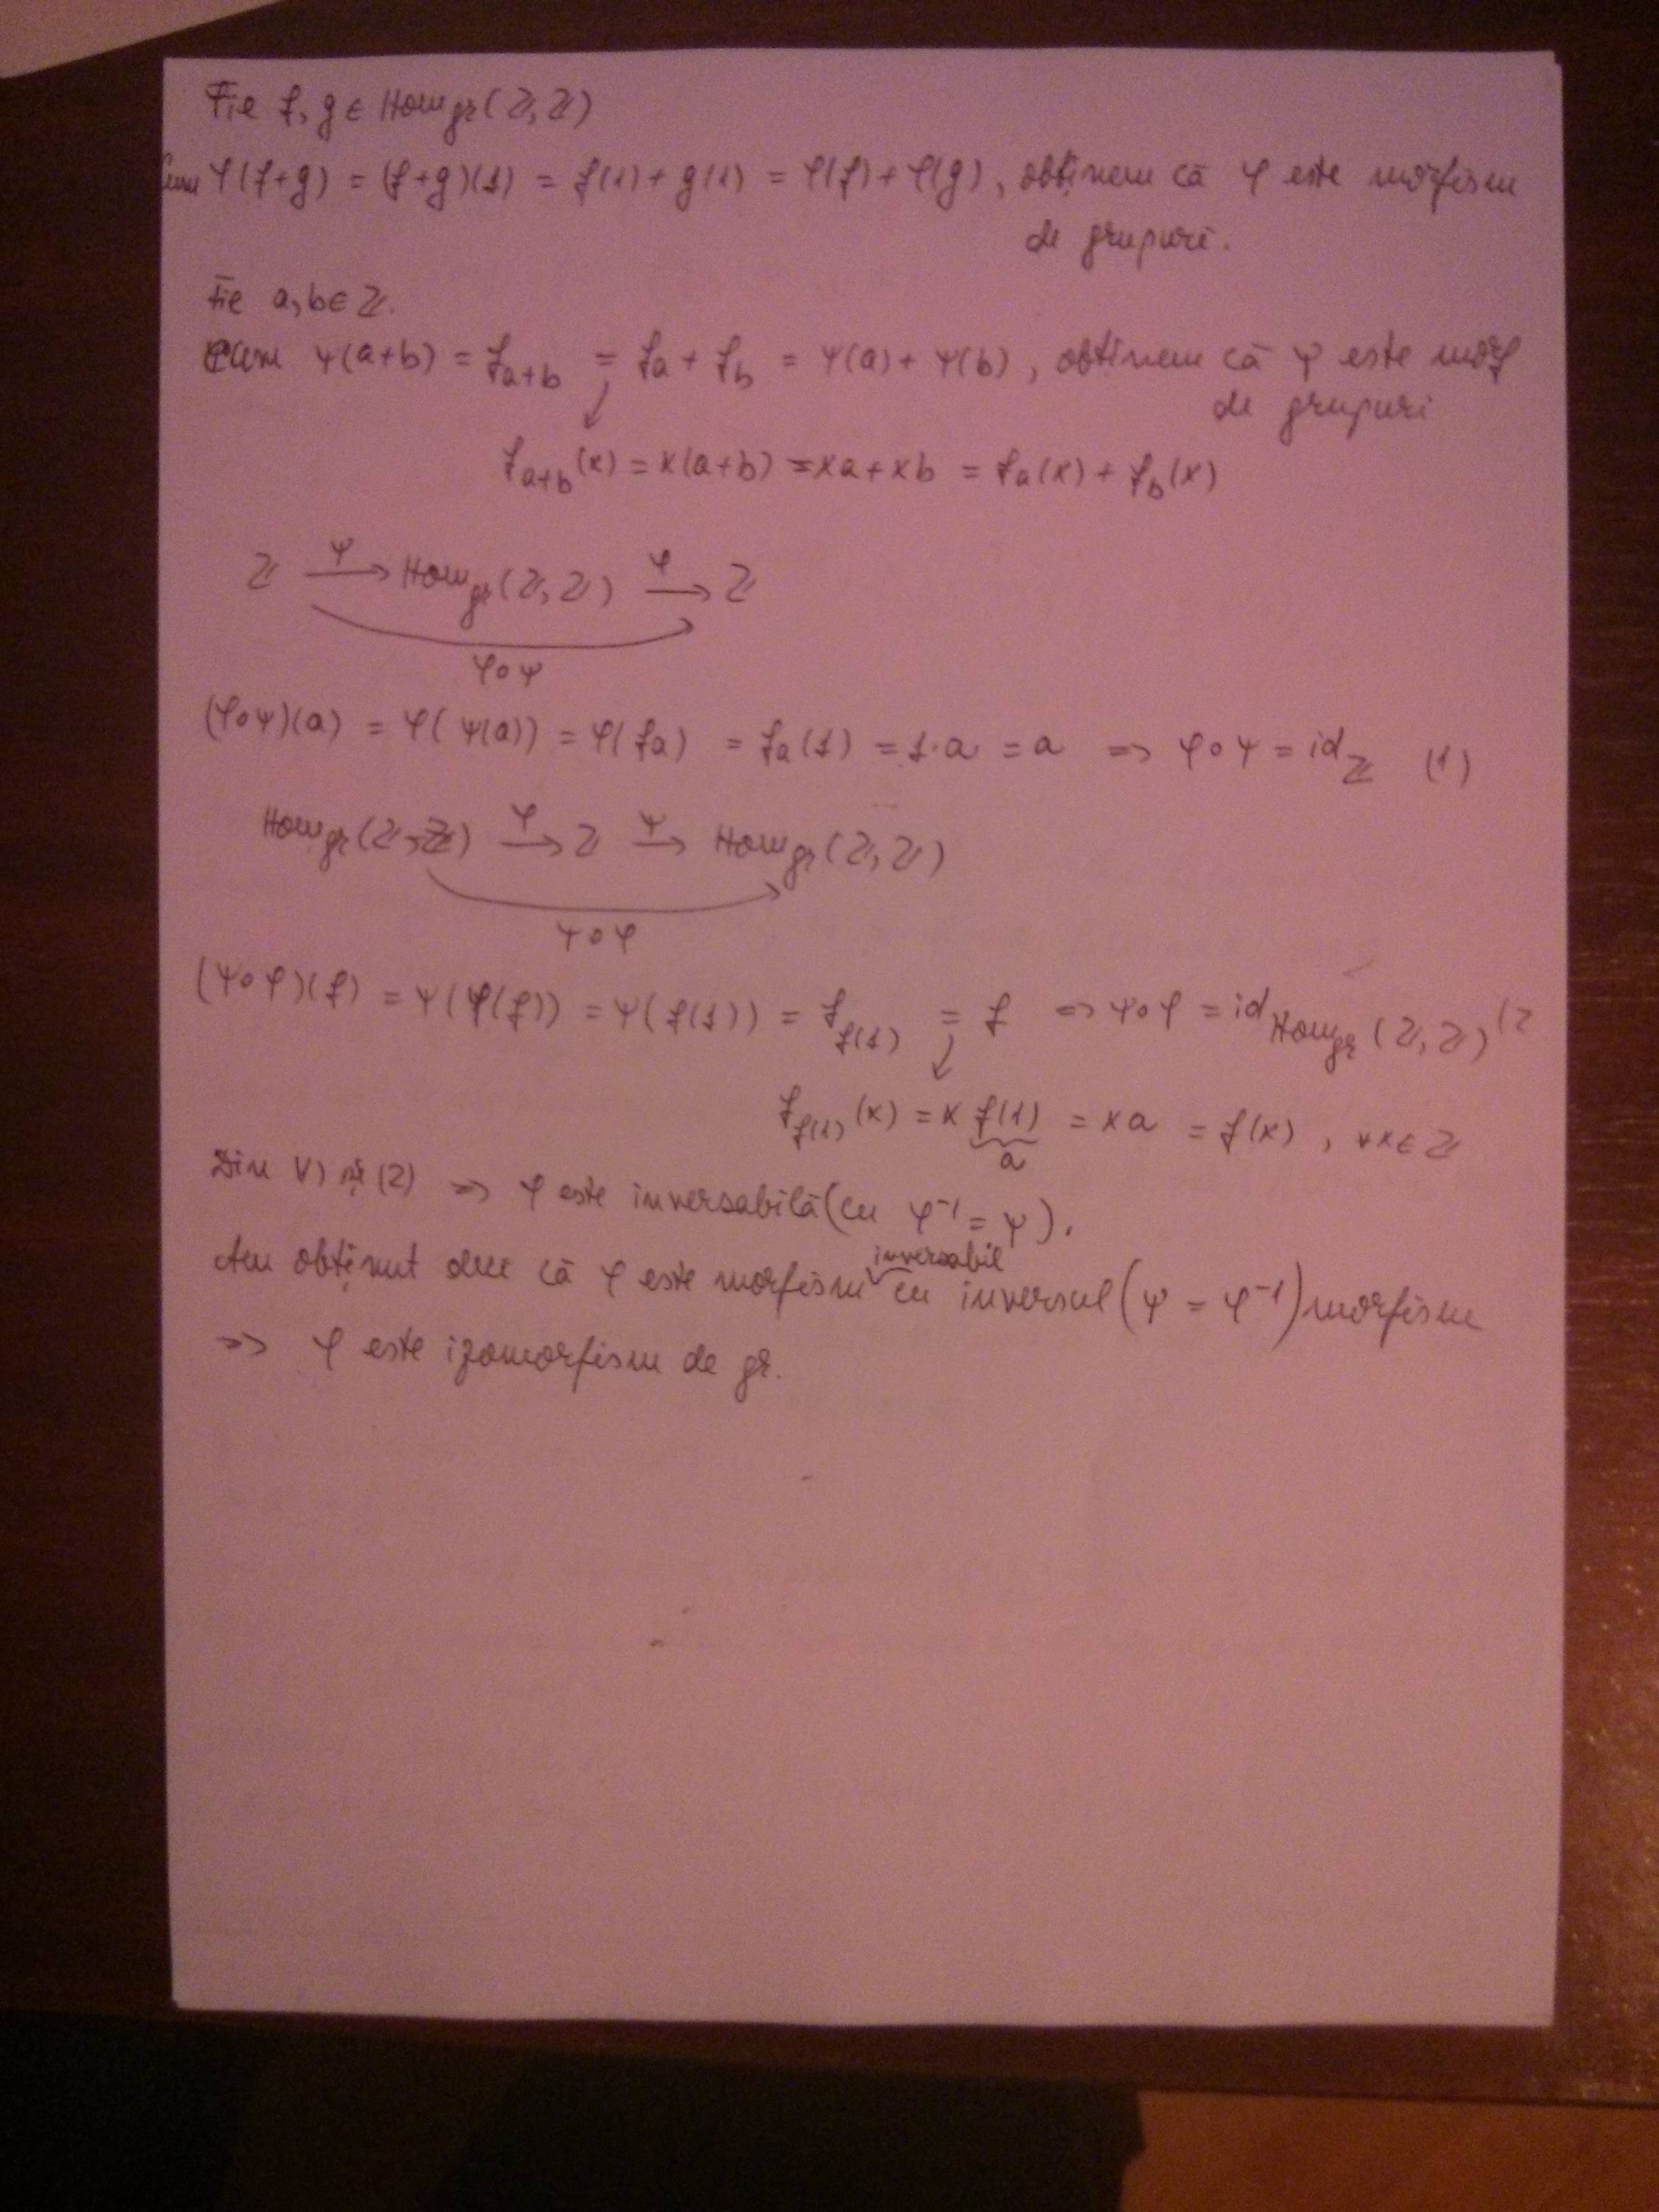 Fie f, g ∈ Hom_gr(ℤ, ℤ)
Cum φ(f+g) = (f+g)(1) = f(1) + g(1) = φ(f) + φ(g), obținem că φ este morfism
de grupuri.
Fie a, b ∈ ℤ.
Cum ψ(a+b) = f_{a+b} = f_a + f_b = ψ(a) + ψ(b), obținem că ψ este morf
de grupuri
f_{a+b}(x) = x(a+b) = xa + xb = f_a(x) + f_b(x)
ℤ —ψ→ Hom_gr(ℤ, ℤ) —φ→ ℤ
φ∘ψ
(φ∘ψ)(a) = φ(ψ(a)) = φ(f_a) = f_a(1) = 1·a = a => φ∘ψ = id_ℤ (1)
Hom_gr(ℤ, ℤ) —φ→ ℤ —ψ→ Hom_gr(ℤ, ℤ)
ψ∘φ
(ψ∘φ)(f) = ψ(φ(f)) = ψ(f(1)) = f_{f(1)} = f => ψ∘φ = id_{Hom_gr(ℤ, ℤ)} (2
f_{f(1)}(x) = x f(1) = xa = f(x), ∀x ∈ ℤ
a
Din (1) și (2) => φ este inversabilă (cu φ⁻¹ = ψ).
inversabil
Am obținut deci că φ este morfism cu inversul (ψ = φ⁻¹) morfism
=> φ este izomorfism de gr.